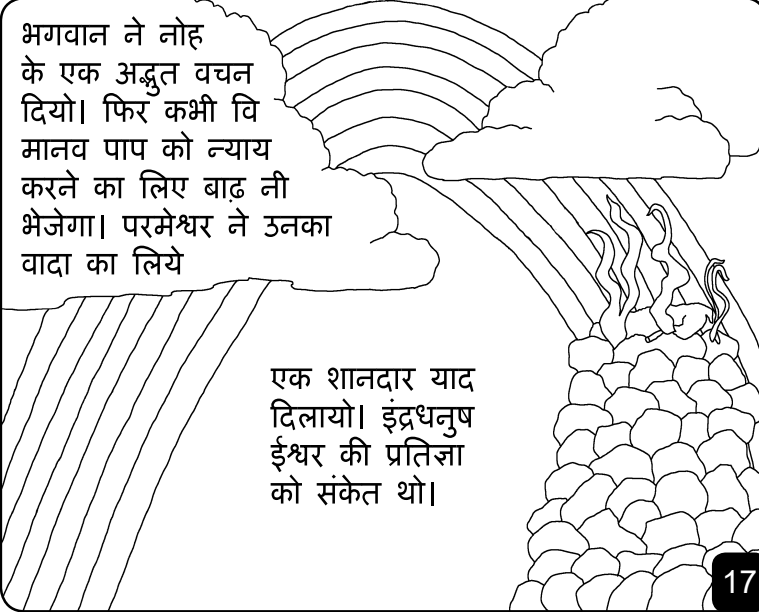 भगवान ने नोह
के एक अद्भुत वचन
दियो। फिर कभी वि
मानव पाप को न्याय
करने का लिए बाढ़ नी
भेजेगा। परमेश्वर ने उनका
वादा का लिये
एक शानदार याद
दिलायो। इंद्रधनुष
ईश्वर की प्रतिज्ञा
को संकेत थो।
17